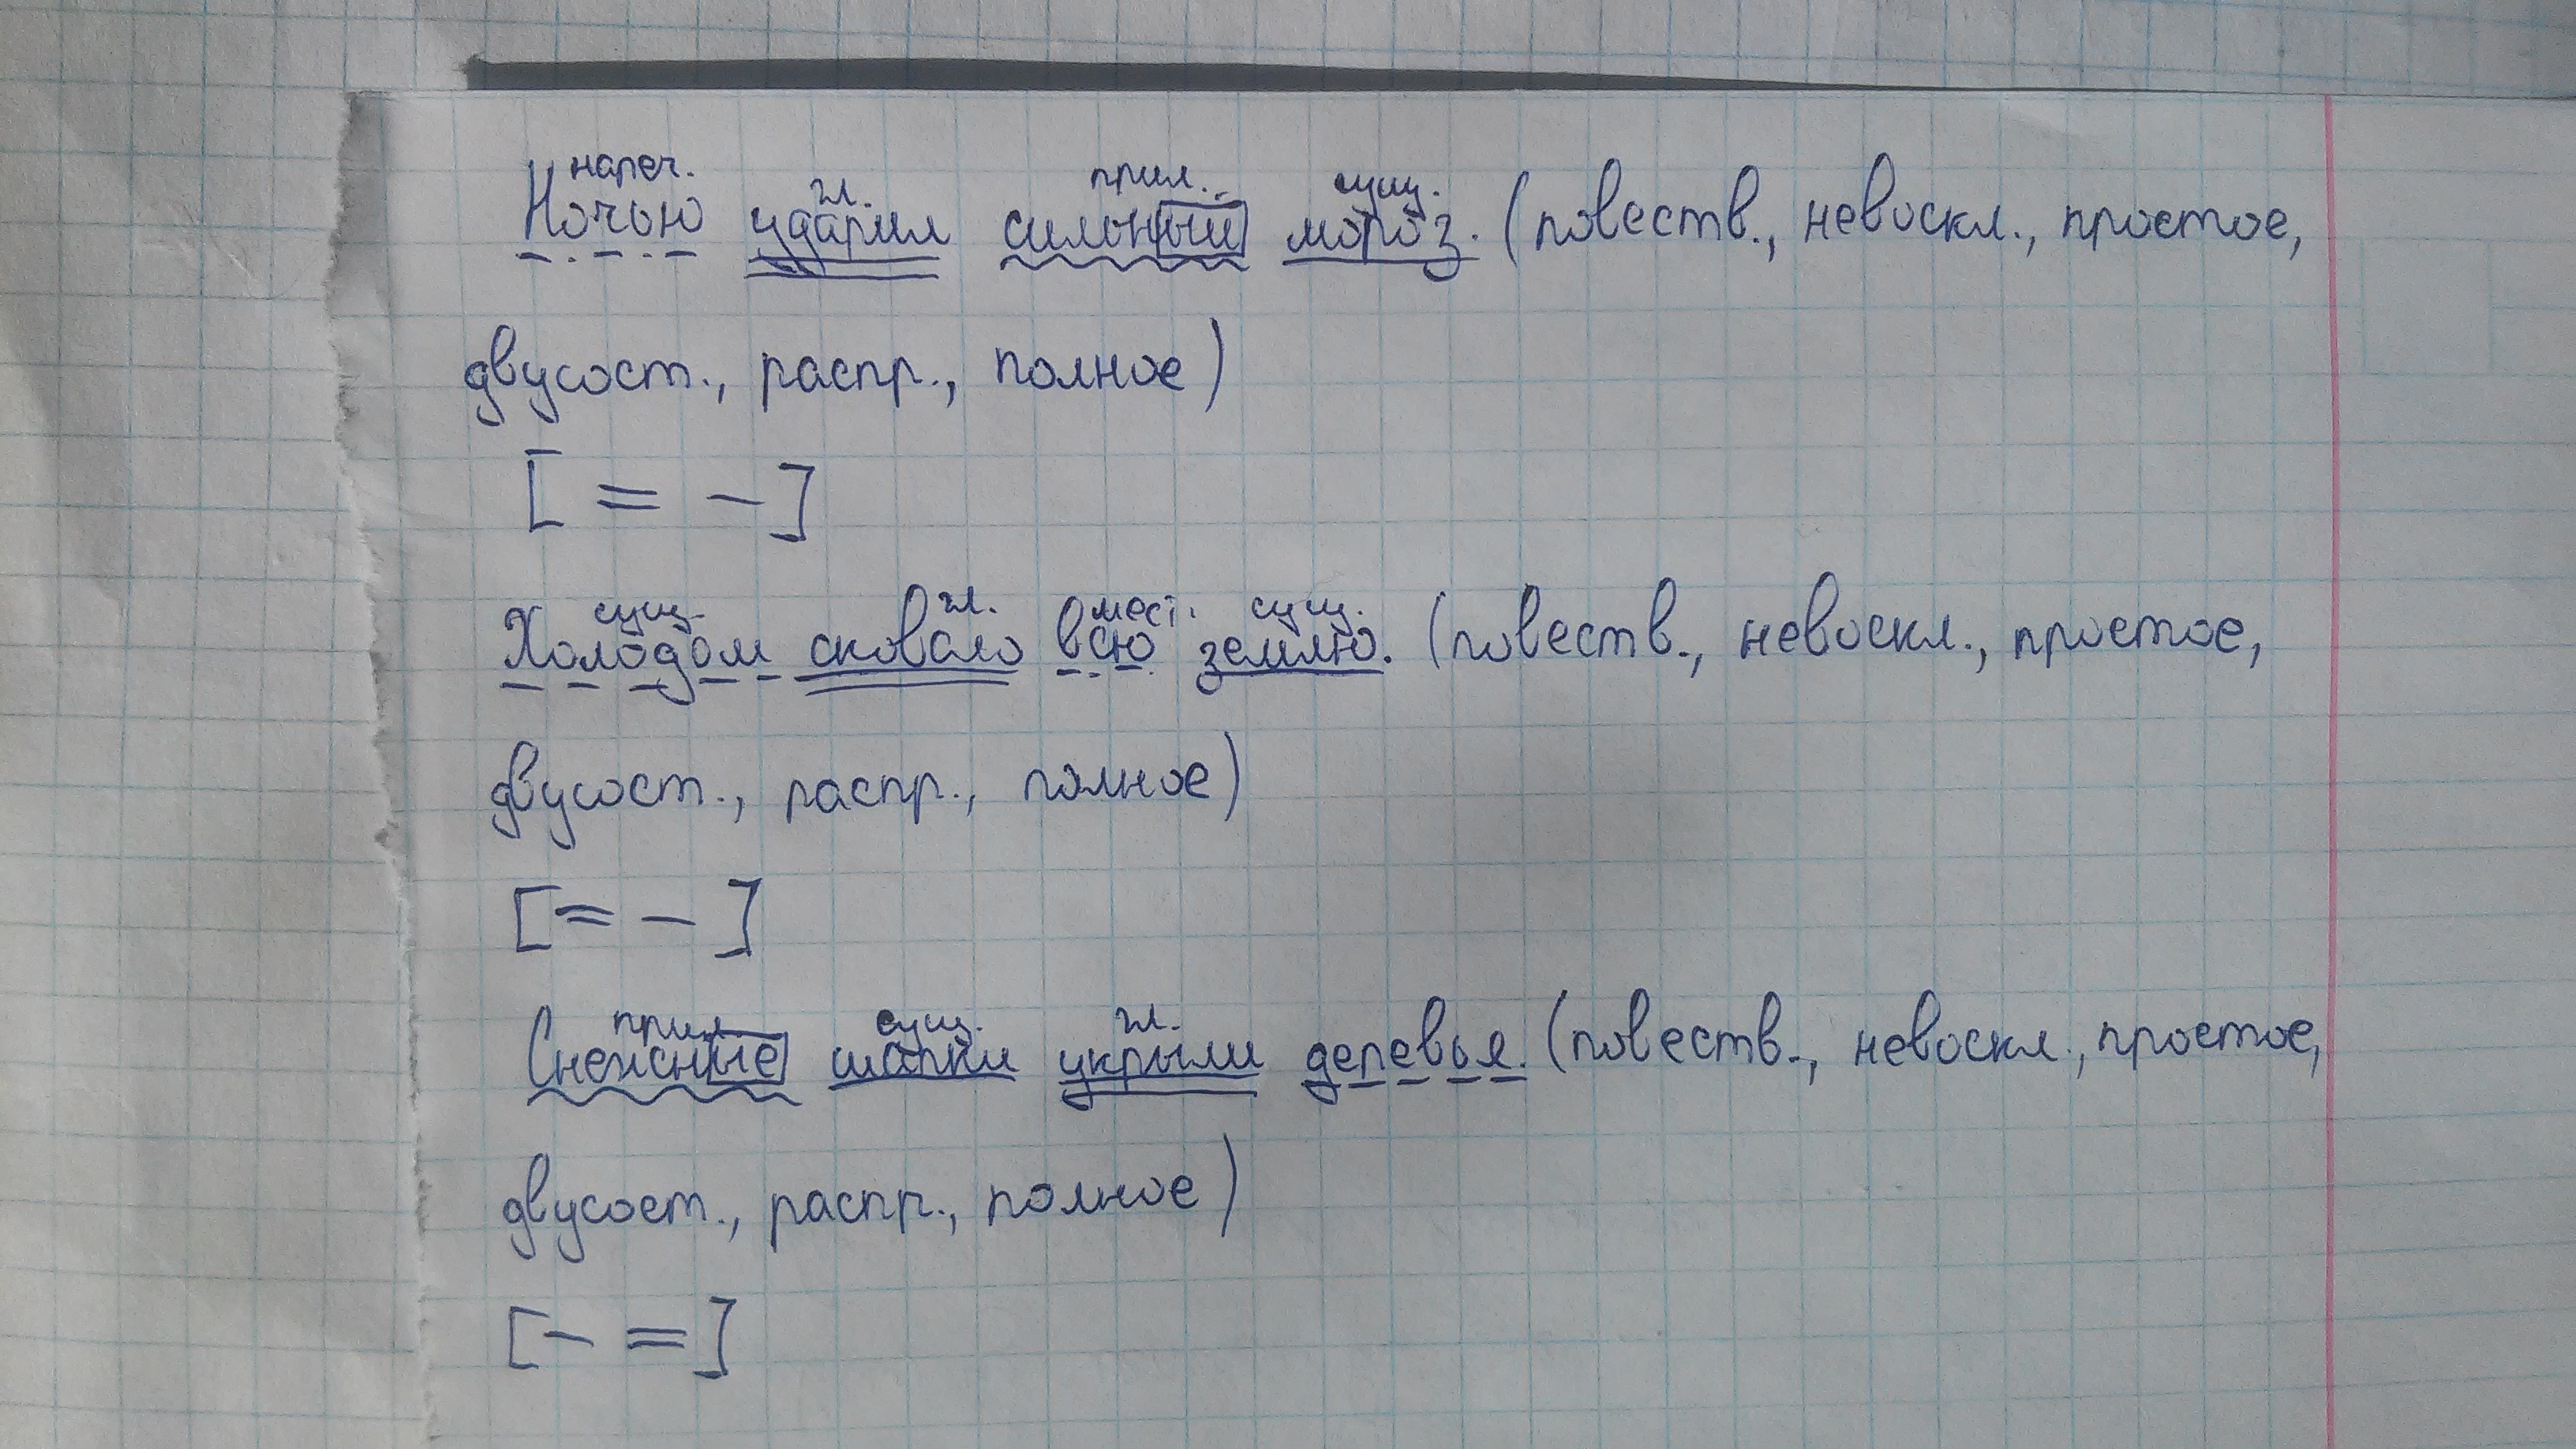 нареч. гл. прил. сущ.
Ночью ударил сильный мороз. (повеств., невоскл., простое,
двусост., распр., полное)
[ = – ]
сущ. гл. мест. сущ.
Холодом сковало всю землю. (повеств., невоскл., простое,
двусост., распр., полное)
[ = – ]
прил. сущ. гл.
Снежные шапки укрыли деревья. (повеств., невоскл., простое,
двусост., распр., полное)
[ – = ]